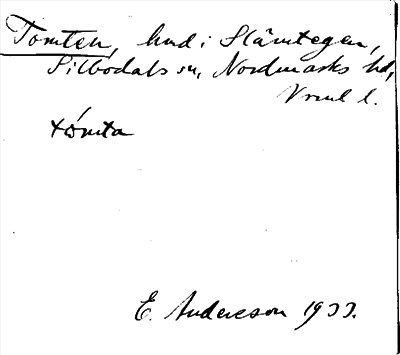 Tomten, hmd i Slämtegen,
Silbodals sn, Nordmarks hd,
Vrml l.
tómta
E. Andersson 1933.